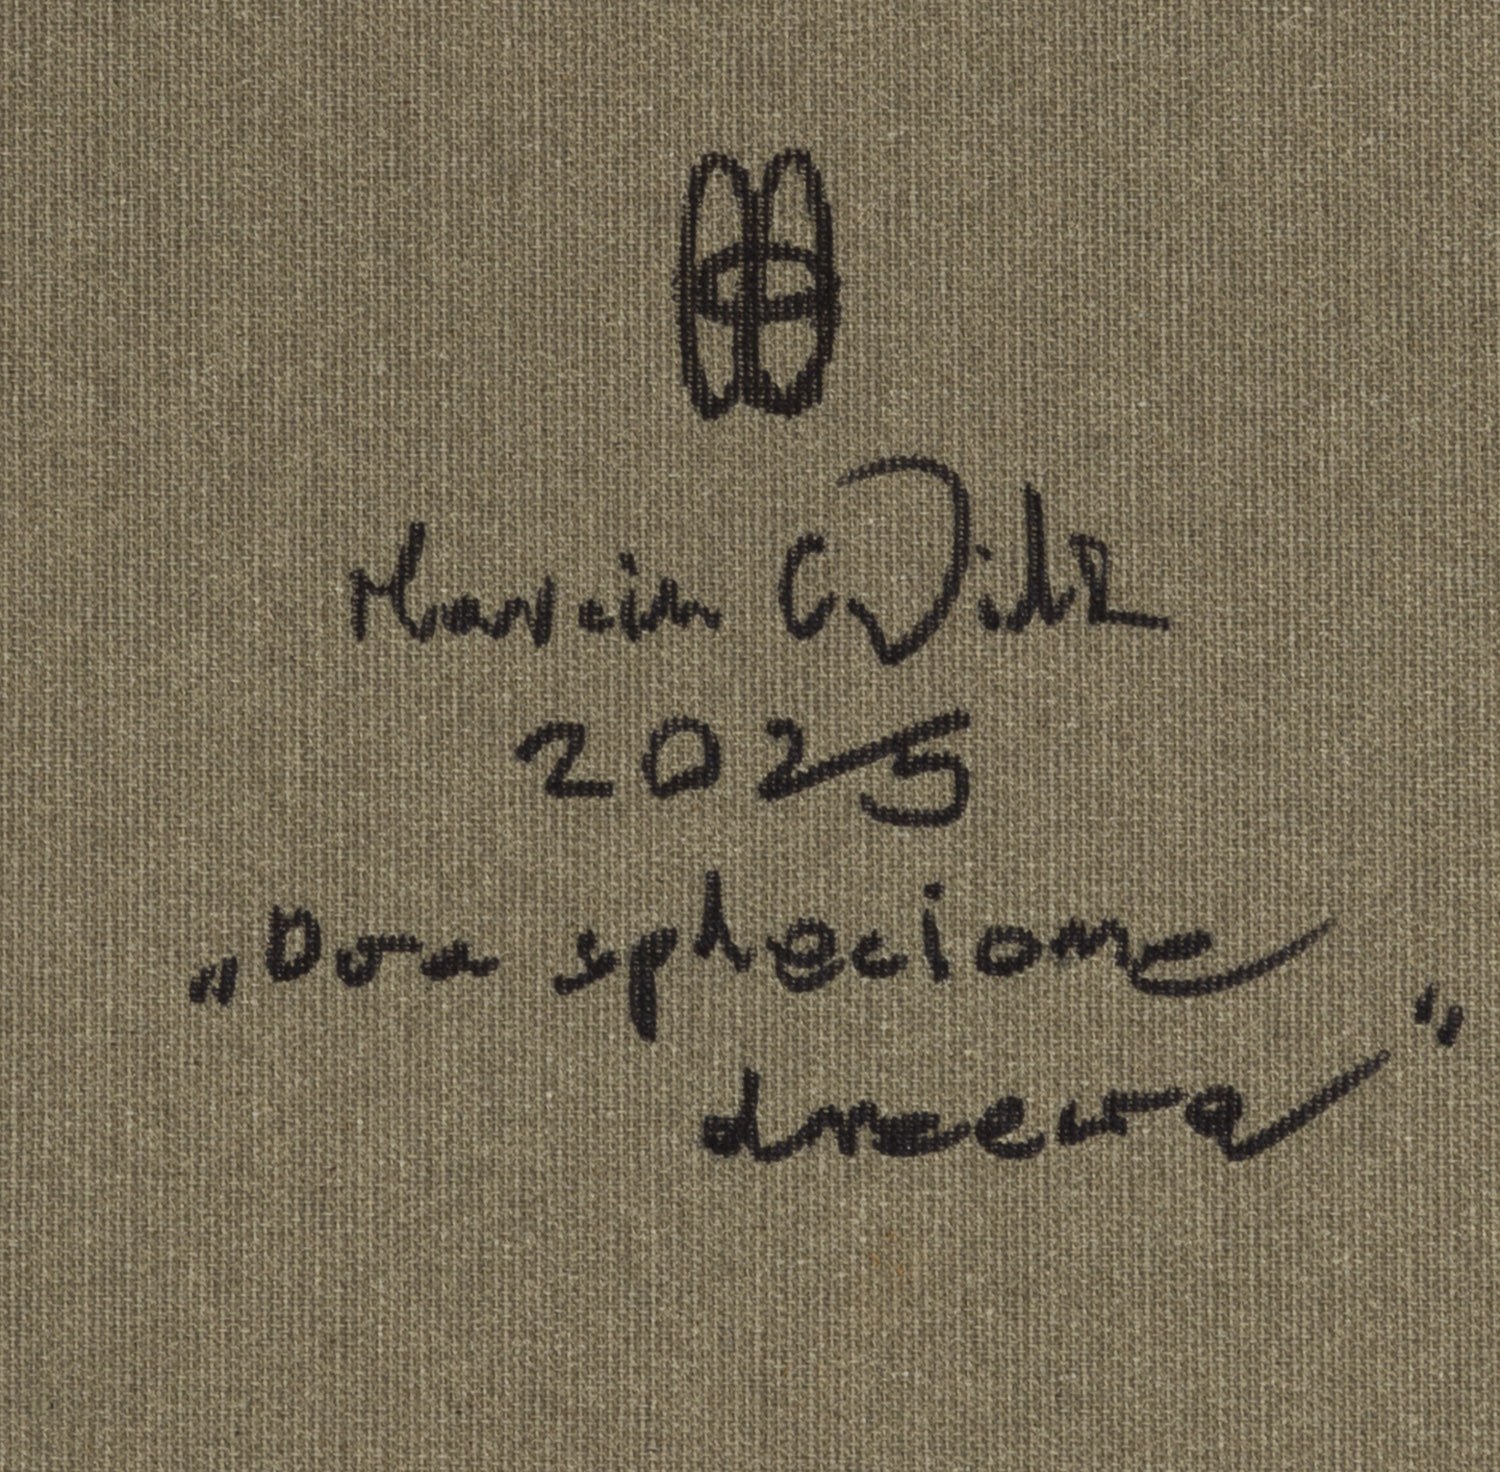 Marcin Wilk
2025
„Dwa splecione
drzewa"